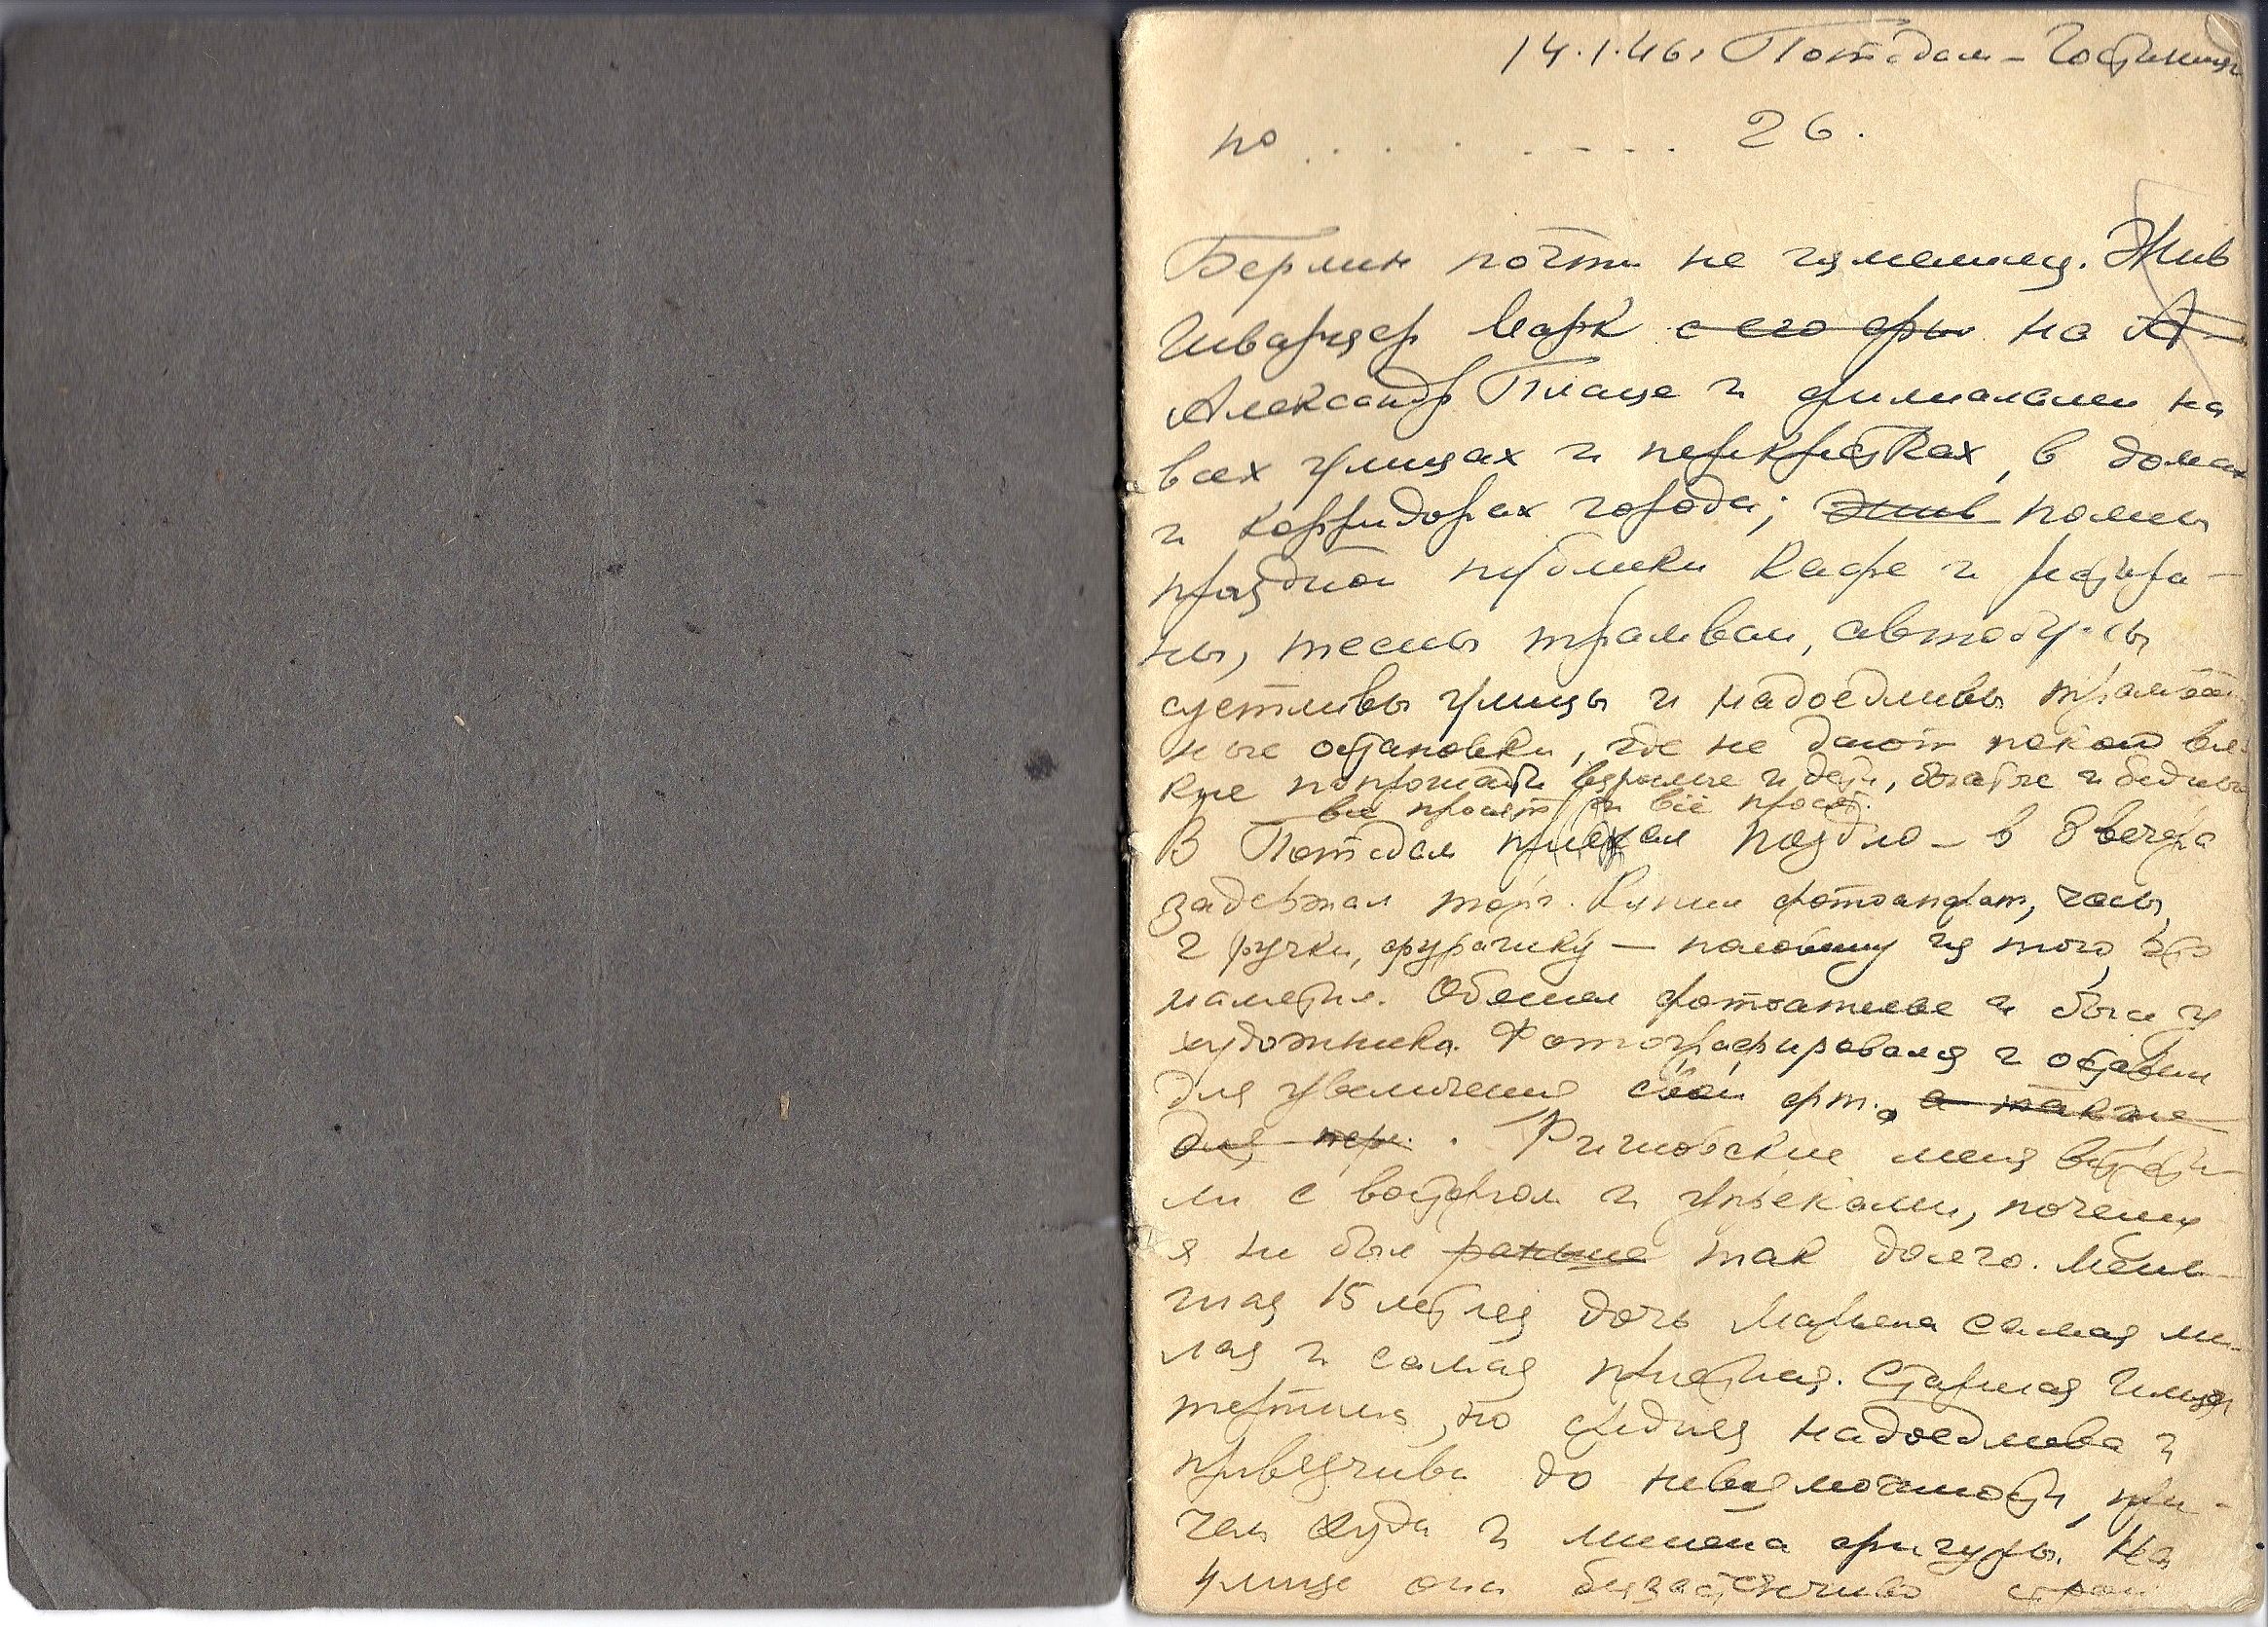 14.1.46. Потсдам – Гостиница
по . . . . . . . . 26.
Берлин почти не изменился. Жив
Шварцер Марк с его фи на А
Александр Плаце и филиалами на
всех улицах и перекрестках, в домах
и корридорах города; жив полны
праздной публики кафе и рестора-
ны, тесны трамваи, автобусы
суетливы улицы и надоедливы трамвай-
ные остановки, где не дают покоя вся-
кие попрошайки взрослые и дети, богатые и бедные
все просят и всё просят.
В Потсдам приехал поздно – в 8 вечера
задержал торг. Купил фотоаппарат, часы,
2 ручки, фуражку – половину из того, что
наметил. Обошел фотоателье и был у
художника. Фотографировался и оставил
для увеличения свои фот. а также
для пер. . Ришовские меня встрети-
ли с восторгом и упреками, почему
я не был раньше так долго. Мень-
шая 15 летняя дочь Марьена самая ми-
лая и самая приятная. Старшая Имея
терпима, но средняя надоедлива и
привязчива до невозможности, при-
чем худа и лишена фигуры. На
улице она беззастенчиво